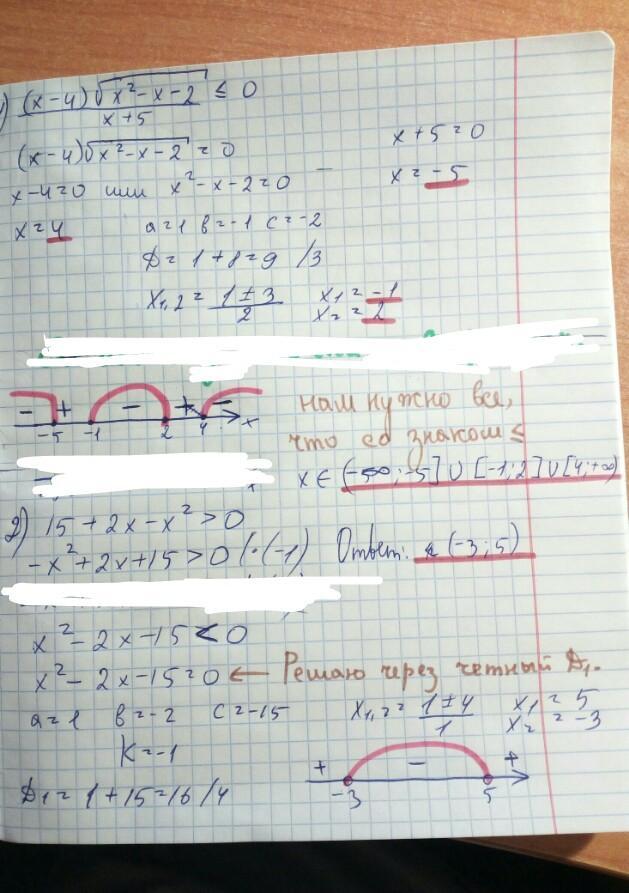 1) (x-4)√(x²-x-2) / (x+5) ≤ 0
(x-4)√(x²-x-2) = 0
x+5=0
x-4=0 или x²-x-2=0
x=-5
x=4
a=1 в=-1 c=-2
D=1+8=9 /3
x1,2 = (1±3)/2
x1=-1
x2=2
- + - + - x
-5 -1 2 4
нам нужно все,
что со знаком ≤
x∈(-∞;-5]∪[-1;2]∪[4;+∞)
2) 15+2x-x²>0
-x²+2x+15>0 (·(-1)) Ответ: (-3;5)
x²-2x-15<0
x²-2x-15=0 ← Решаю через четный D1.
a=1 в=-2 c=-15
x1,2=(1±4)/1
x1=5
x2=-3
K=-1
+ - +
-3 5
D1=1+15=16 /4